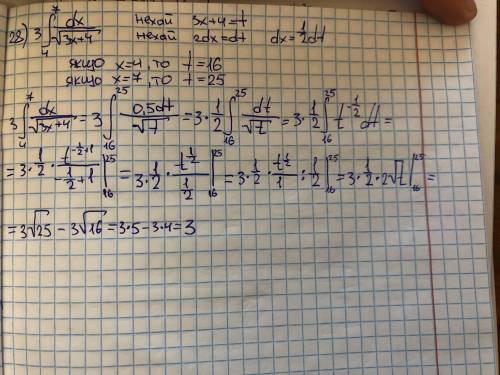 28) 3 ∫₄⁷ dx/√(3x+4) нехай 3x+4=t
нехай 2dx=dt dx=½dt
якщо x=4, то t=16
якщо x=7, то t=25
3 ∫₄⁷ dx/√(3x+4) = 3 ∫₁₆²⁵ 0,5dt/√t = 3·½ ∫₁₆²⁵ dt/√t = 3·½ ∫₁₆²⁵ t^(-½) dt =
= 3·½· t^(-½+1)/(-½+1) |₁₆²⁵ = 3·½· t^½/½ |₁₆²⁵ = 3·½· t^½/1 : ½ |₁₆²⁵ = 3·½·2√t |₁₆²⁵ =
= 3√25 - 3√16 = 3·5-3·4=3